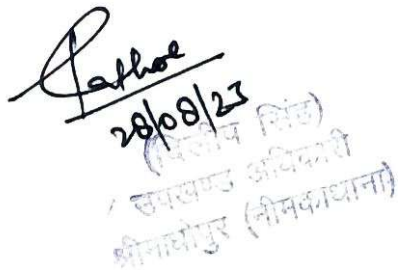 Rathore
28/08/23
(दिलीप सिंह)
उपखण्ड अधिकारी
श्रीमाधोपुर (नीमकाथाना)